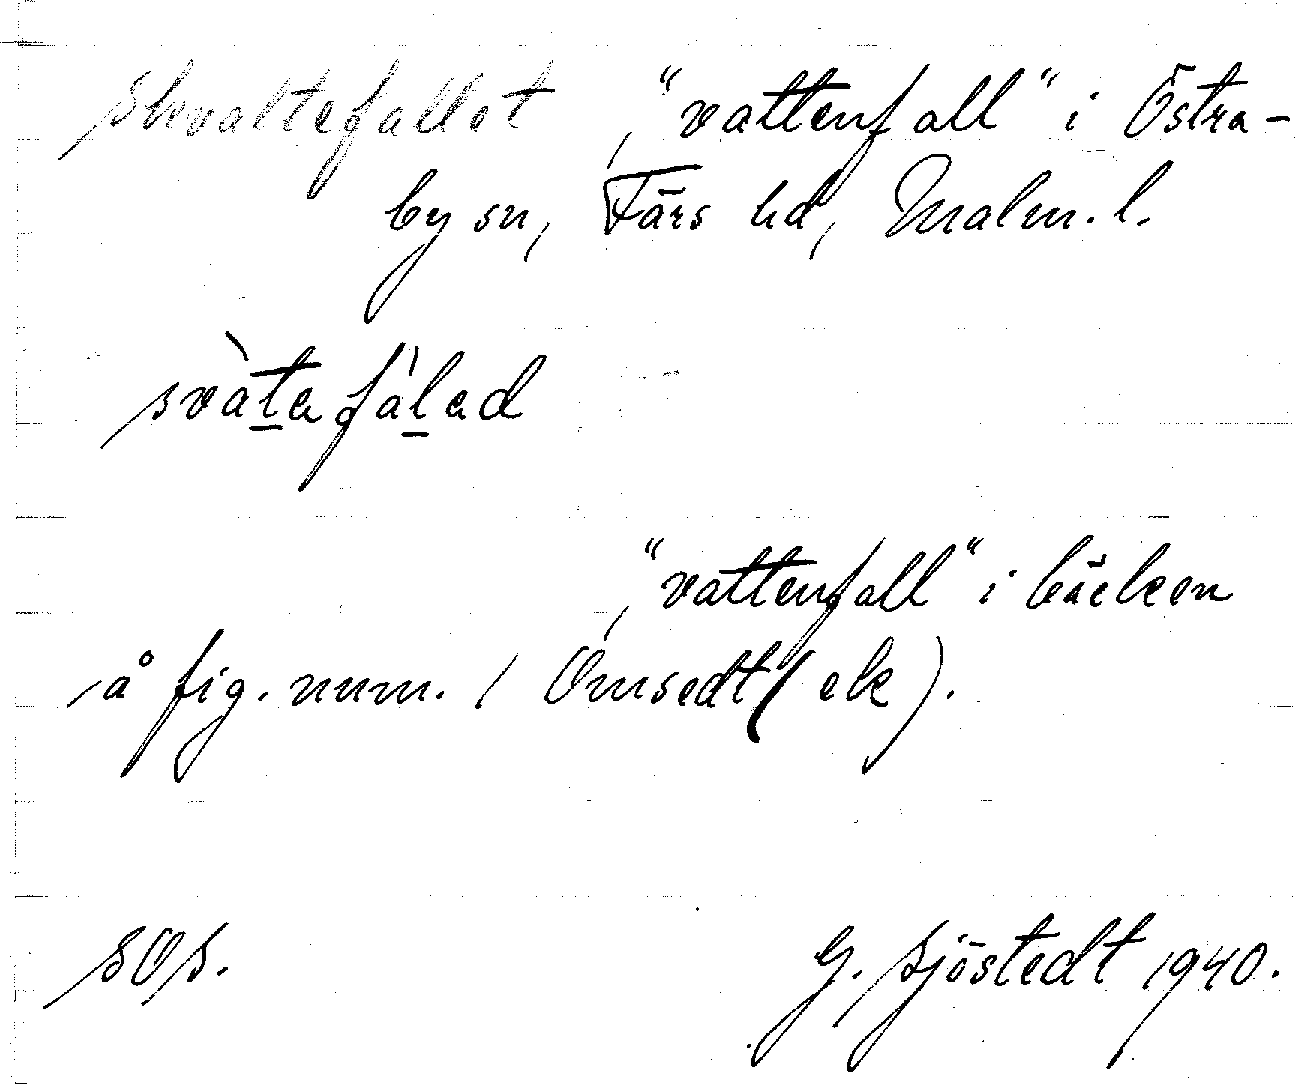 Skvaltefallet, "vattenfall" i Östra-
by sn, Färs hd, Malm. l.
svàtafálad
, "vattenfall" i bäcken
å fig. num. 1 Omsedt (ek).
SOS.
G. Sjöstedt 1940.